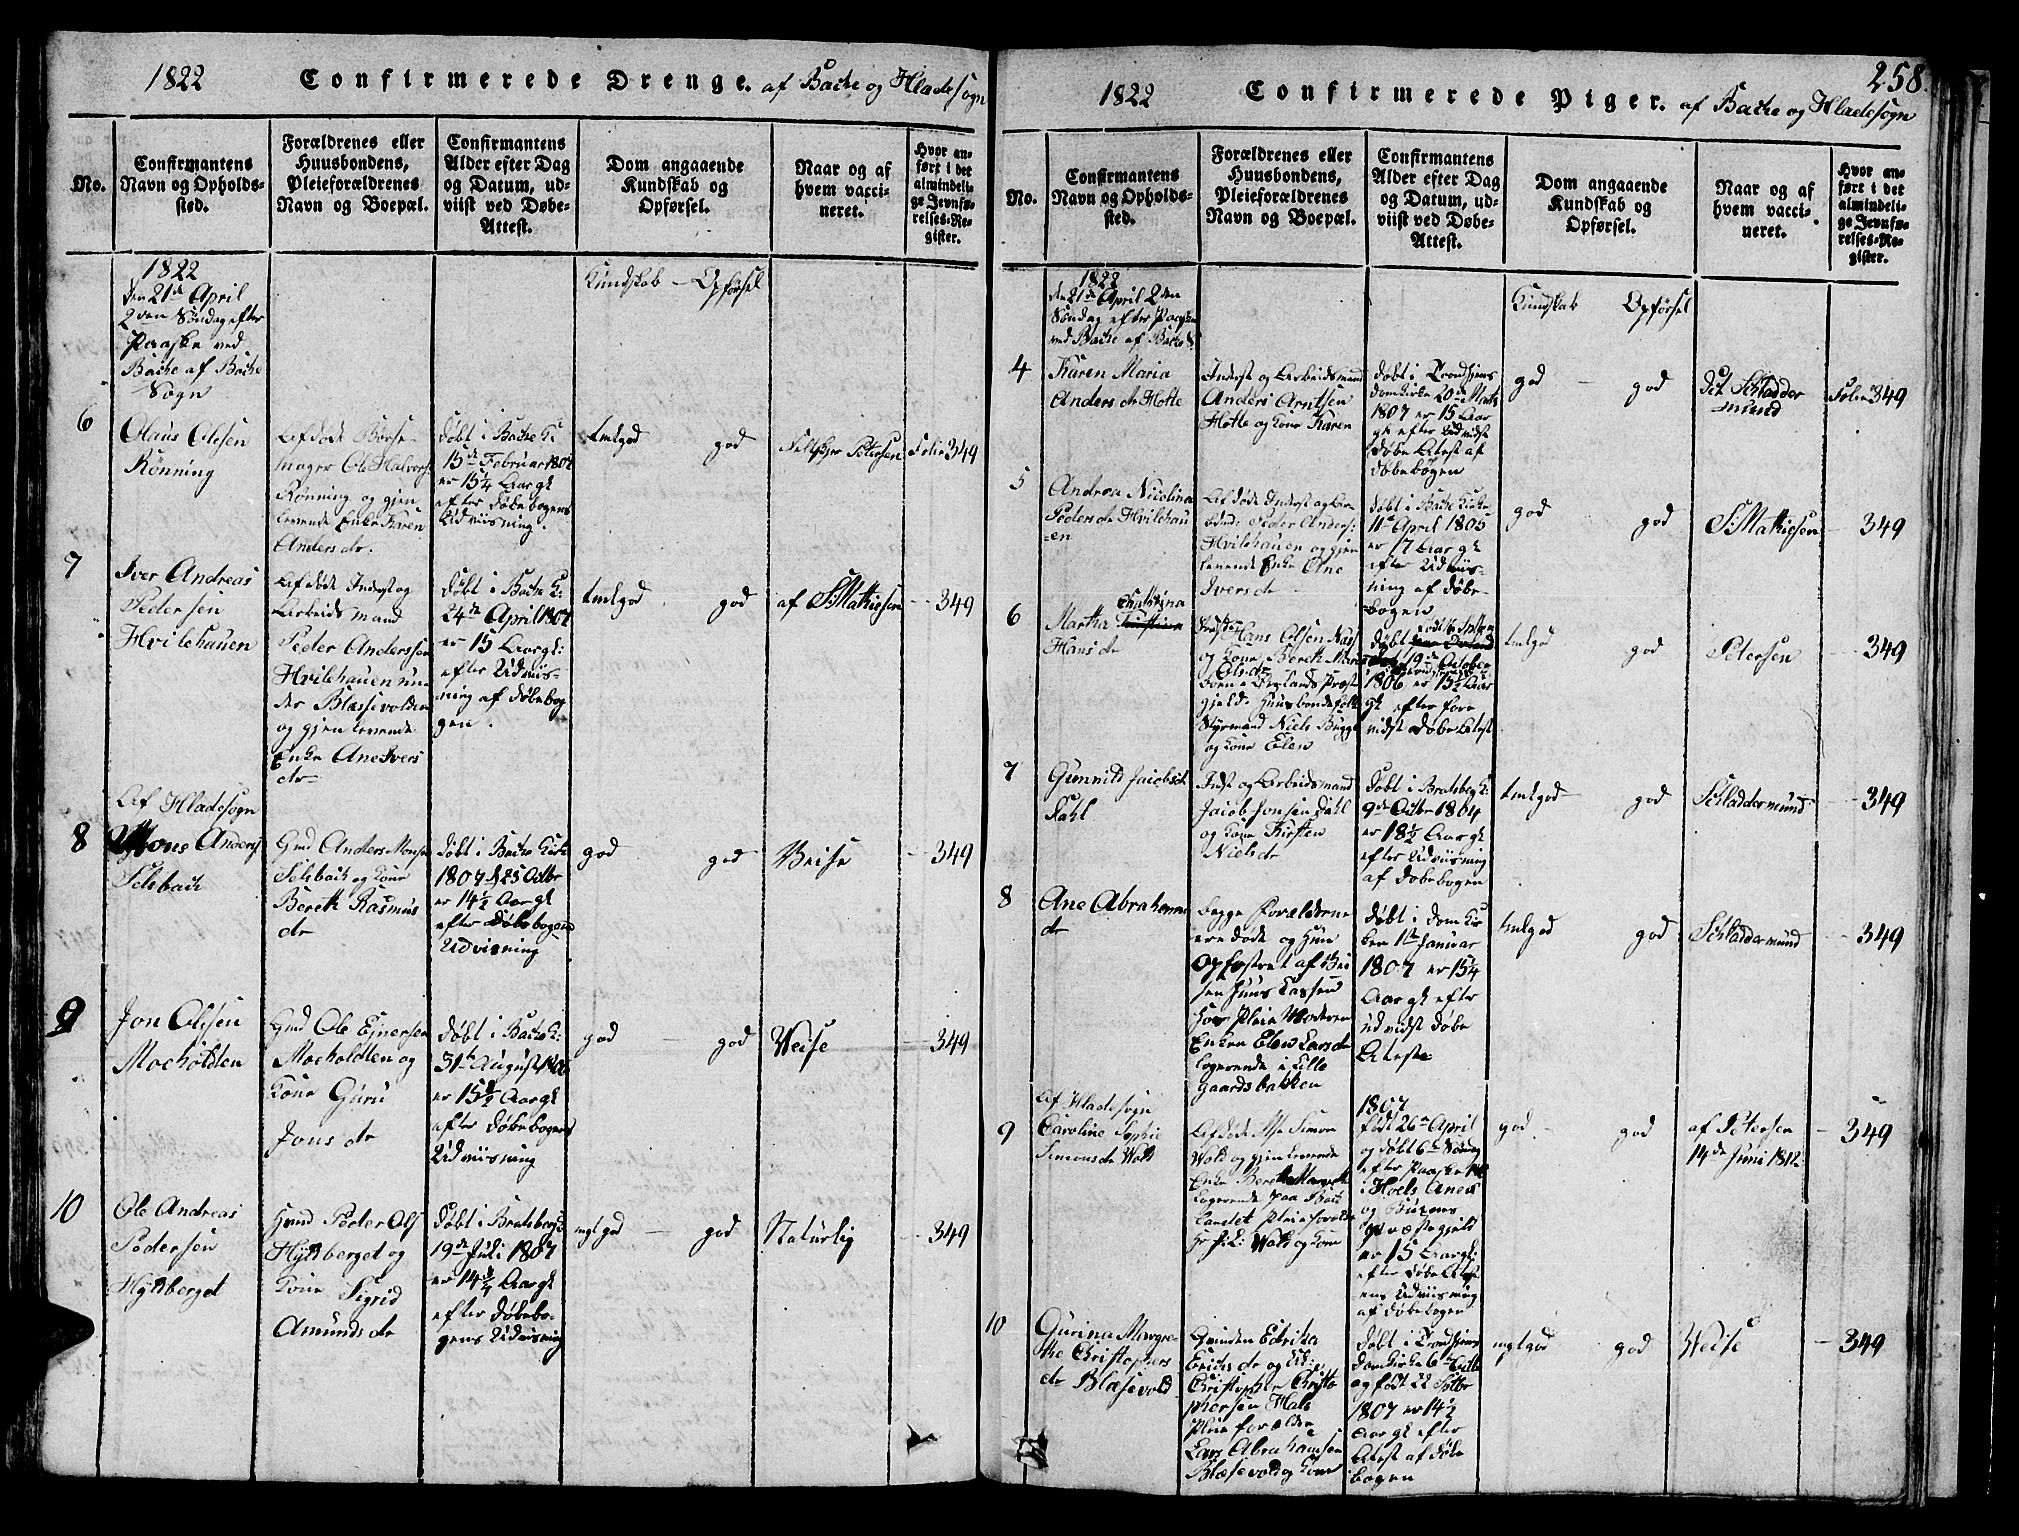 1822 Confirmerede Drenge. af Bache og Hladesogn
No.
Confirmantens
Navn og Opholds-
sted.
Forældrenes eller
Huusbondens,
Pleieforældrenes
Navn og Boepæl.
Confirmantens
Alder efter Dag
og Datum, ud-
viist ved Døbe-
Attest.
Dom angaaende
Kundskab og
Opførsel.
Naar og af
hvem vacci-
neret.
Hvor an-
ført i det
almindeli-
ge Jevnfø-
relses-Re-
gister.
1822
den 21de April
2den Søndag efter
Paaske ved
Bache af Bache
Sogn
Kundskab - Opførsel
6
Olaus Olesen
Rønning
Afdøde Børse-
mager Ole Halvors
Rønning og gjen
levende Enke Karen
Anders dr.
døbt i Bache K:
15de Februar 1807
er 15¼ Aar gl
efter Døbebogens
Udviisning.
tmlgod god
Feltskjer Petersen
Folie 349
7
Iver Andreas
Pedersen
Hvilehauen
Afdøde Inderst og
Arbeidsmand
Peder Anderssen
Hvilehauen un-
der Blæssevolden
og gjenlevende
Enke Ane Ivers
dr
døbt i Bache K:
24de April 1807
er 15 Aar gl:
efter Udviis-
ning af døbebog
gen.
tmlgod god
af S: Mathiesen
349
Af Hladesogn
8
Mons Anders
Selsbach
Gmd Anders Monsen
Selsbach og Kone
Bereth Rasmus
dr
døbt i Bache Kirke
1807 d 25 Octbr
er 14½ Aar gl
efter Døbebogens
Udvisning
god god
Weise
349
9
Jon Olesen
Moeholdten
Gmd Ole Ejnersen
Moeholdten og
Kone Guru
Jons dr
døbt i Bache K:
31te August 1806
er 15½ Aar gl
efter Døbebogens
Udviisning
god - god
Weise
349
10
Ole Andreas
Pedersen
Hyldberget
Hmd Peder Ols
Hyldberget og
Kone Sigrid
Amunds dr
døbt i Bratsberg K
19de Juli 1807
er 14¾ Aar gl
efter Døbebo-
gens Udvisning
mgl god - god
Naturlig
349
1822 Confirmerede Piger. af Bache og Hladesogn
258.
No.
Confirmantens
Navn og Opholds-
sted.
Forældrenes eller
Huusbondens,
Pleieforældrenes
Navn og Boepæl.
Confirmantens
Alder efter Dag
og Datum, ud-
viist ved Døbe-
Attest.
Dom angaaende
Kundskab og
Opførsel.
Naar og af
hvem vacci-
neret.
Hvor an-
ført i det
almindeli-
ge Jevnfø-
relses-Re-
gister.
1822
den 21de April 2den
Søndag efter Paaske
ved Bache af Bache S:
Kundskab Opførsel
4
Karen Maria
Anders dr Hotte
Inderst og Arbeidsmand
Anders Arntsen
Hotte og Kone Karen
døbt i Trondhjems
Domkirke 20de Marts
1807 er 15 Aar
gl efter Udvidst
Døbe Atest af
døbebogen
god - god
Det Schladder
mund
Folie 349
5
Andrea Nicolina
Peders dr Hvilehau
-en
Afdøde Inderst og Ar-
beidsm: Peder Anders:
Hvilehauen og gjen
levende Enke Ane
Ivers dr
døbt i Bache Kirke
11te April 1805
er 17 Aar gl
efter Udviis-
ning af døbe-
bogen
god god
S: Mathiesen
349
6
Martha Cathrina
Hans dr
Hans Olsen Næss
og Kone Bereth Maria
Ols dr
Børn i Ørelands Præste
gjeld: Huusbondefolk
Styrmand Niels Bugge
og Kone Elen
døbt
19de October
1806 er 15½ Aar
gl efter fore
vidst Døbe Atest
tmlgod god
Petersen
349
7
Gunnild Jacobs dr
Dahl
Indst og Arbeidsmand
Jacob Jonsen Dahl
og Kone Kirsten
Niels dr
døbt i Bratsberg K:
9de Octbr 1804
er 18½ Aar gl
efter Udviisning
af døbebogen
tmlgod god
Schladdermund
349
8
Ane Abrahams
dr
begge Forældrene
ere døde og Hun
Opfostret af Bei
sen Huus Cassen
Hos Pleie Moderen
Enken Elen Lars dr
logerende i Lille
gaardsbakken
døbt i Dom Kir
ken 1te Januar
1807 er 15¼
Aar gl efter
udvidst Døbe
Ateste
tmlgod god
Schladdermund
349
Af Hladesogn
9
Caroline Sophie
Simons dr Wold
Afdøde Simon
Wold og gjenlevende
Enke Bereth Margreth
logerende paa Bach
landet Pleieforældre
Hr P: L: Wold og Kone
1807
født 26de April
og døbt 6te Søndag
efter Paaske
i Hoels Anex
og Biugns
Præstegjeld
er 15 Aar gl:
efter Døbe Atest
ens Udviisning
af døbebogen
god. - god
af Petersen
14de Juni 1812:
349
10
Gurina Margre-
the Christophers
dr Blæsevold
Qvinden Edrika
Erichs dr og UK:
Christopher Christo
phersen Hals
Pleie forældre
Lars Abrahamsen
Blæsevold og Kone
døbt i Trondhjems
Domkirke 6te Octbr
og født 22 Septbr
1807 er 14½
Aar gl efter
Atest af døbe
bogen
mgl god god
Weise
349